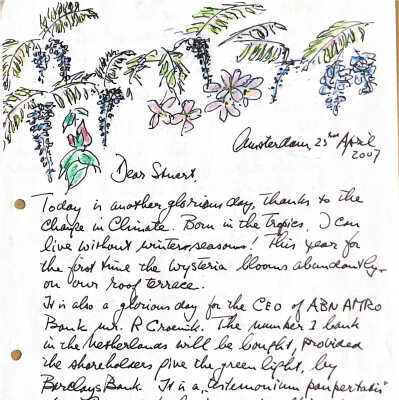 Amsterdam 23rd April
2007
Dear Stuart,
Today is another glorious day, thanks to the
change in Climate. Born in the Tropics, I can
live without winterseasons! This year for
the first time the Wysteria blooms abundantly
on our roof terrace.
It is also a glorious day for the CEO of ABN AMRO
Bank mr. R Groenink. The number 1 bank
in the Netherlands will be bought, provided
the shareholders give the green light, by
Barclays Bank. It is a "testemonium paupertatis"